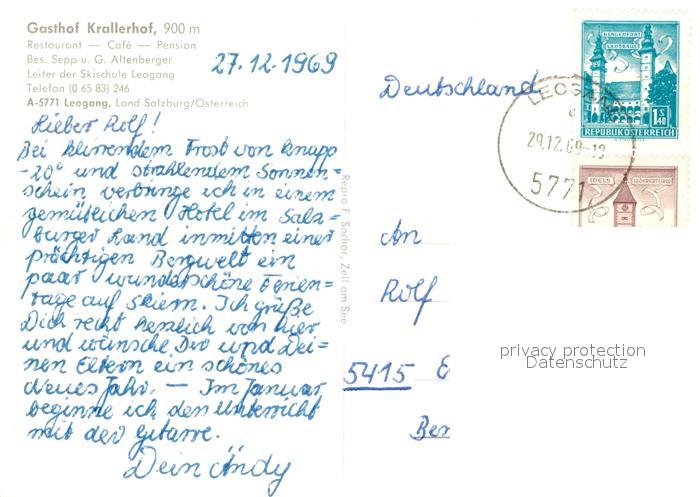 Gasthof Krallerhof, 900 m
Restaurant — Café — Pension
Bes. Sepp u. G. Altenberger
Leiter der Skischule Leogang
Telefon (0 65 83) 246
A-5771 Leogang, Land Salzburg/Österreich
27.12.1969
Lieber Rolf!
Bei klirrendem Frost von knapp
-20° und strahlendem Sonnen=
schein verbringe ich in einem
gemütlichen Hotel im Salz=
burger Land inmitten einer
prächtigen Bergwelt ein
paar wunderschöne Ferien-
tage auf Skiern. Ich grüße
Dich recht herzlich von hier
und wünsche Dir und Dei=
nen Eltern ein schönes
Neues Jahr. — Im Januar
beginne ich den Unterricht
mit der Gitarre.
Dein Ändy
Repro F. Sochor, Zell am See
Deutschland
An
Rolf
5415 E
Ber
BURGENFORT
LEOGANG
29.12.69-18
5771
1 S 40
REPUBLIK ÖSTERREICH
WELS LEDERERTURM
privacy protection
Datenschutz